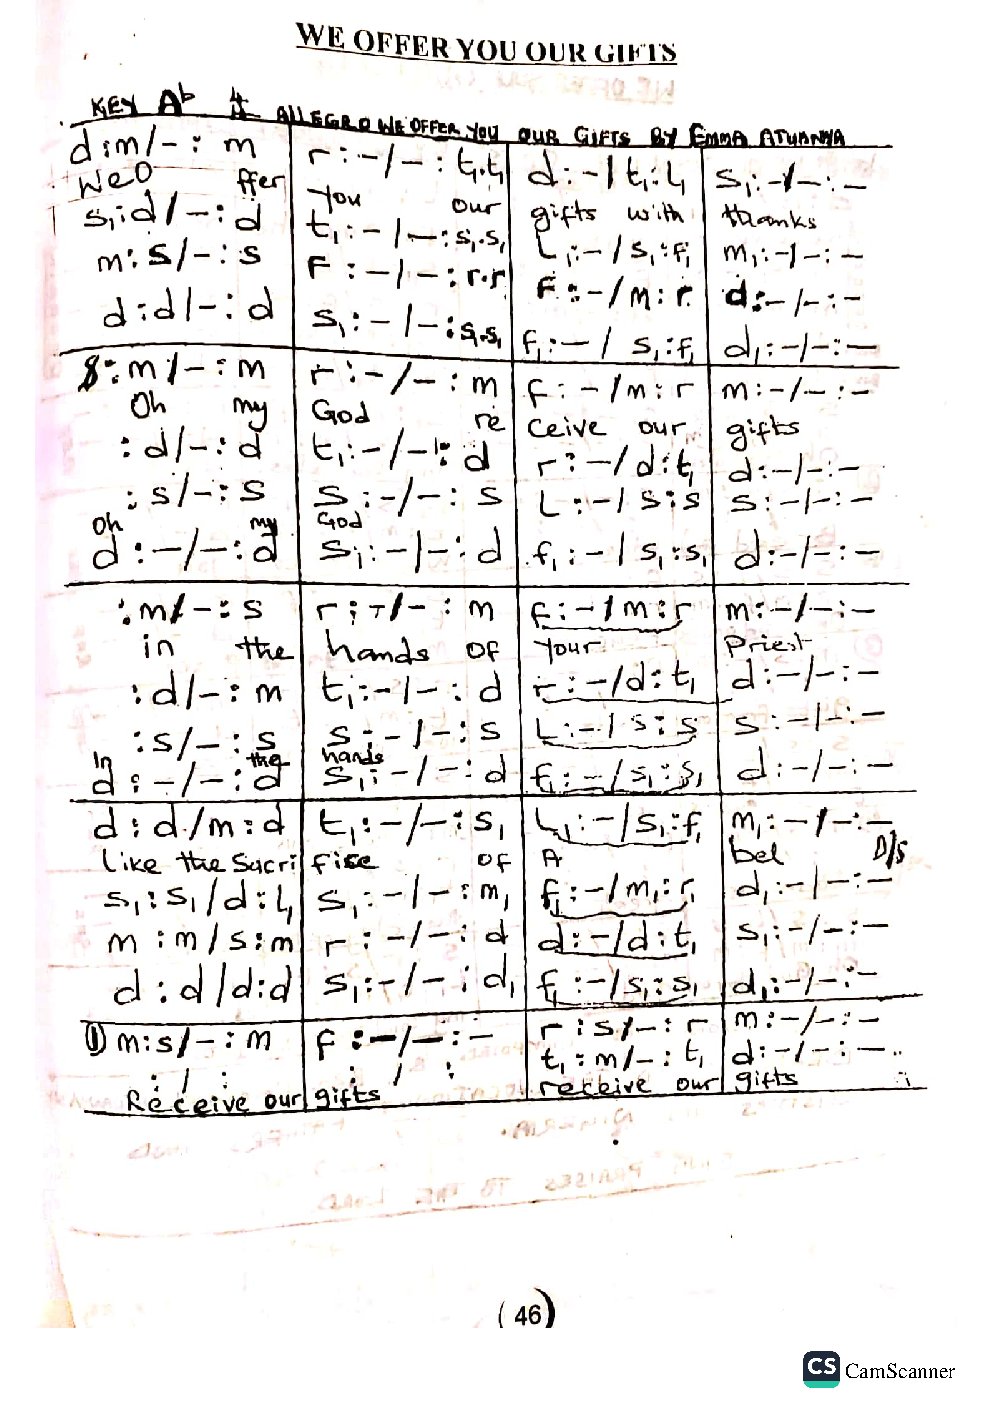 WE OFFER YOU OUR GIFTS
KEY Ab 4/4 ALLEGRO WE OFFER YOU OUR GIFTS BY EMMA ATUANYA
d:m/-:m r:-/-:t₁.t₁ d:-/t₁:l₁ s₁:-/-:-
We O ffer you our gifts with thanks
s₁:d/-:d t₁:-/-:s₁.s₁ L₁:-/s₁:f₁ m₁:-/-:-
m:s/-:s F:-/-:r.r F:-/m:r d:-/-:-
d:d/-:d s₁:-/-:s₁.s₁ f₁:-/s₁:f₁ d₁:-/-:-
:m/-:m r:-/-:m f:-/m:r m:-/-:-
Oh my God re ceive our gifts
:d/-:d t₁:-/-:d r:-/d:t₁ d:-/-:-
:s/-:s s:-/-:s L:-/s:s s:-/-:-
Oh my God
d:-/-:d s₁:-/-:d f₁:-/s₁:s₁ d:-/-:-
:m/-:s r:-/-:m f:-/m:r m:-/-:-
in the hands of your Priest
:d/-:m t₁:-/-:d r:-/d:t₁ d:-/-:-
:s/-:s s:-/-:s L:-/s:s s:-/-:-
In the hands
d:-/-:d s₁:-/-:d f₁:-/s₁:s₁ d:-/-:-
d:d/m:d t₁:-/-:s₁ L₁:-/s₁:f₁ m₁:-/-:-
Like the Sacri fice of A bel D/S
s₁:s₁/d:l₁ s₁:-/-:m₁ f₁:-/m₁:r₁ d₁:-/-:-
m:m/s:m r:-/-:d d:-/d:t₁ s₁:-/-:-
d:d/d:d s₁:-/-:d₁ f₁:-/s₁:s₁ d₁:-/-:-
① m:s/-:m f:-/-:- r:s/-:r m:-/-:-
:/: :/: t₁:m/-:t₁ d:-/-:-
Receive our gifts receive our gifts
(46)
CS CamScanner